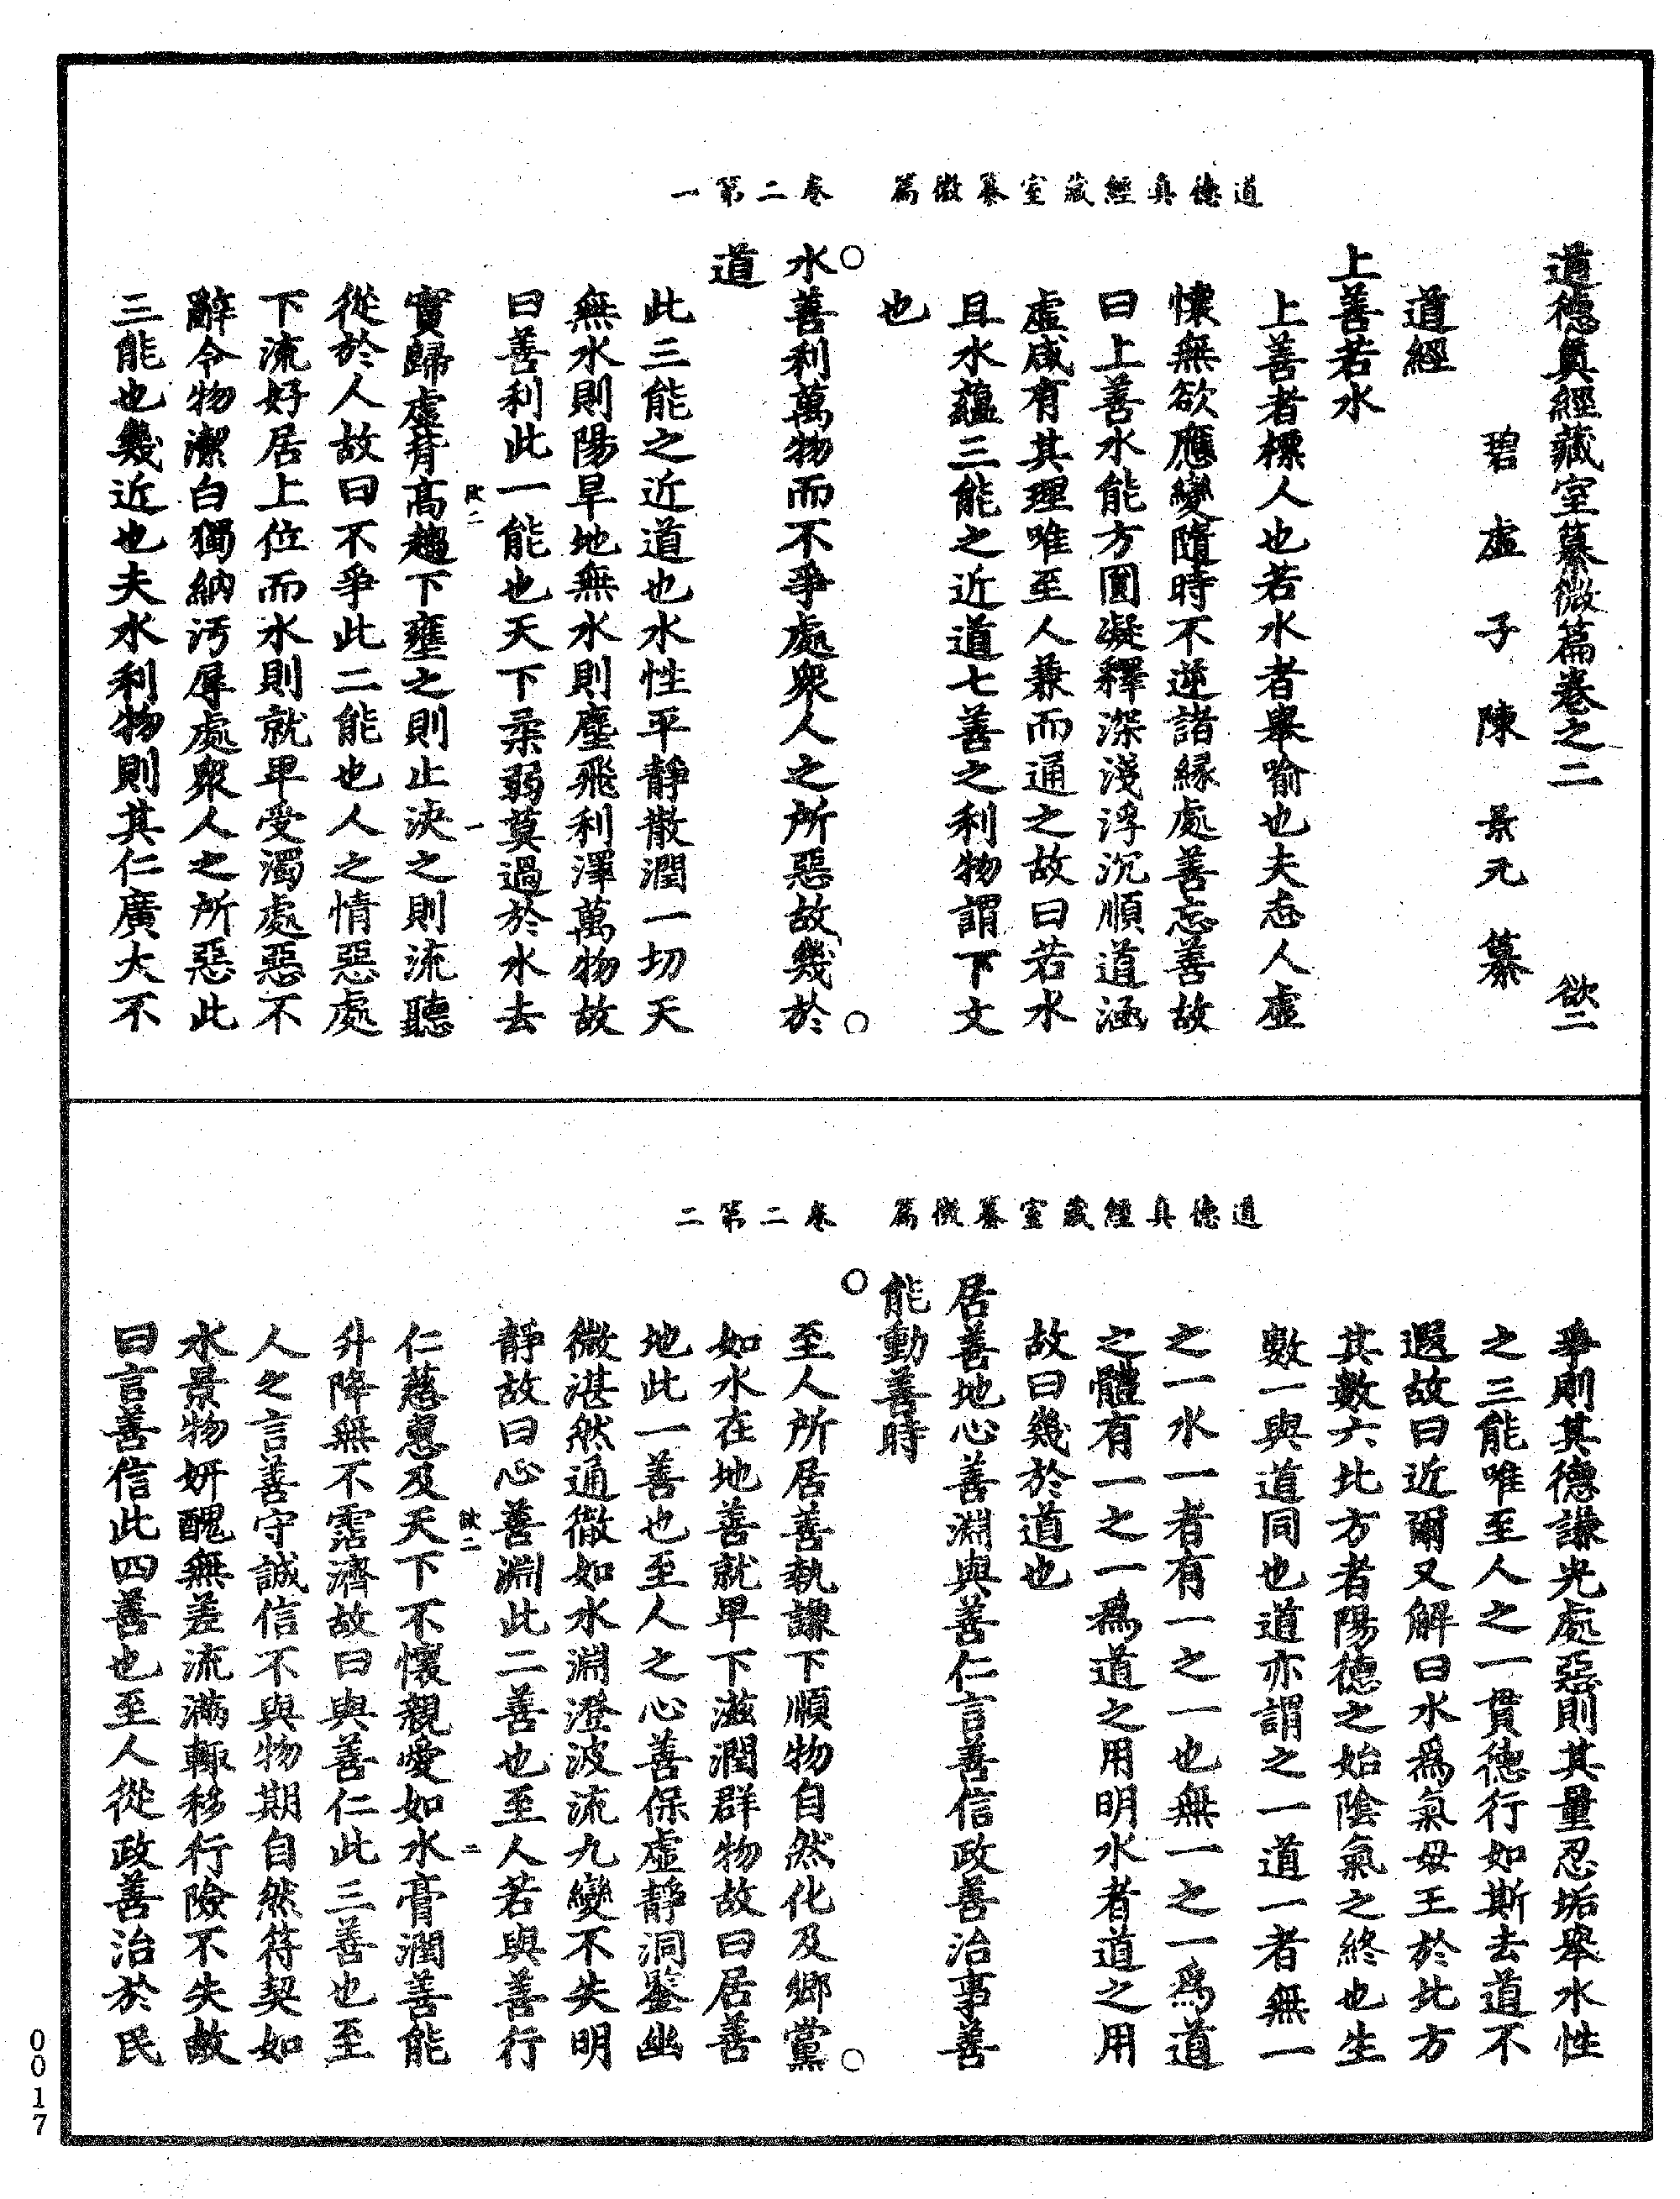 道德真經藏室纂微篇　卷二第一
道德真經藏室纂微篇卷之二　欲二
碧虛子陳景元纂
道經
上善若水
上善者標人也若水者舉喻也夫至人虛
懷無欲應變隨時不逆諸緣處善忘善故
曰上善水能方圓凝釋深淺浮沉順道涵
虛咸有其理唯至人兼而通之故曰若水
且水蘊三能之近道七善之利物謂下文
也
○水善利萬物而不爭處衆人之所惡故幾於○
道
此三能之近道也水性平靜散潤一切天
無水則陽旱地無水則塵飛利澤萬物故
曰善利此一能也天下柔弱莫過於水去
欲二　一
實歸虛背高趨下壅之則止決之則流聽
從於人故曰不爭此二能也人之情惡處
下流好居上位而水則就卑受濁處惡不
辭令物潔白獨納污辱處衆人之所惡此
三能也幾近也夫水利物則其仁廣大不
道德真經藏室纂微篇　卷二第二
爭則其德謙光處惡則其量忍垢舉水性
之三能唯至人之一貫德行如斯去道不
遐故曰近爾又解曰水爲氣母王於北方
其數六北方者陽德之始陰氣之終也生
數一與道同也道亦謂之一道一者無一
之一水一者有一之一也無一之一爲道
之體有一之一爲道之用明水者道之用
故曰幾於道也
居善地心善淵與善仁言善信政善治事善
能動善時
○至人所居善執謙下順物自然化及鄉黨○
如水在地善就卑下滋潤群物故曰居善
地此一善也至人之心善保虛靜洞鑒幽
微湛然通徹如水淵澄波流九變不失明
靜故曰心善淵此二善也至人若與善行
欲二　二
仁慈惠及天下不懷親愛如水膏潤善能
升降無不霑濟故曰與善仁此三善也至
人之言善守誠信不與物期自然符契如
水景物妍醜無差流滿輙移行險不失故
曰言善信此四善也至人從政善治於民
0017